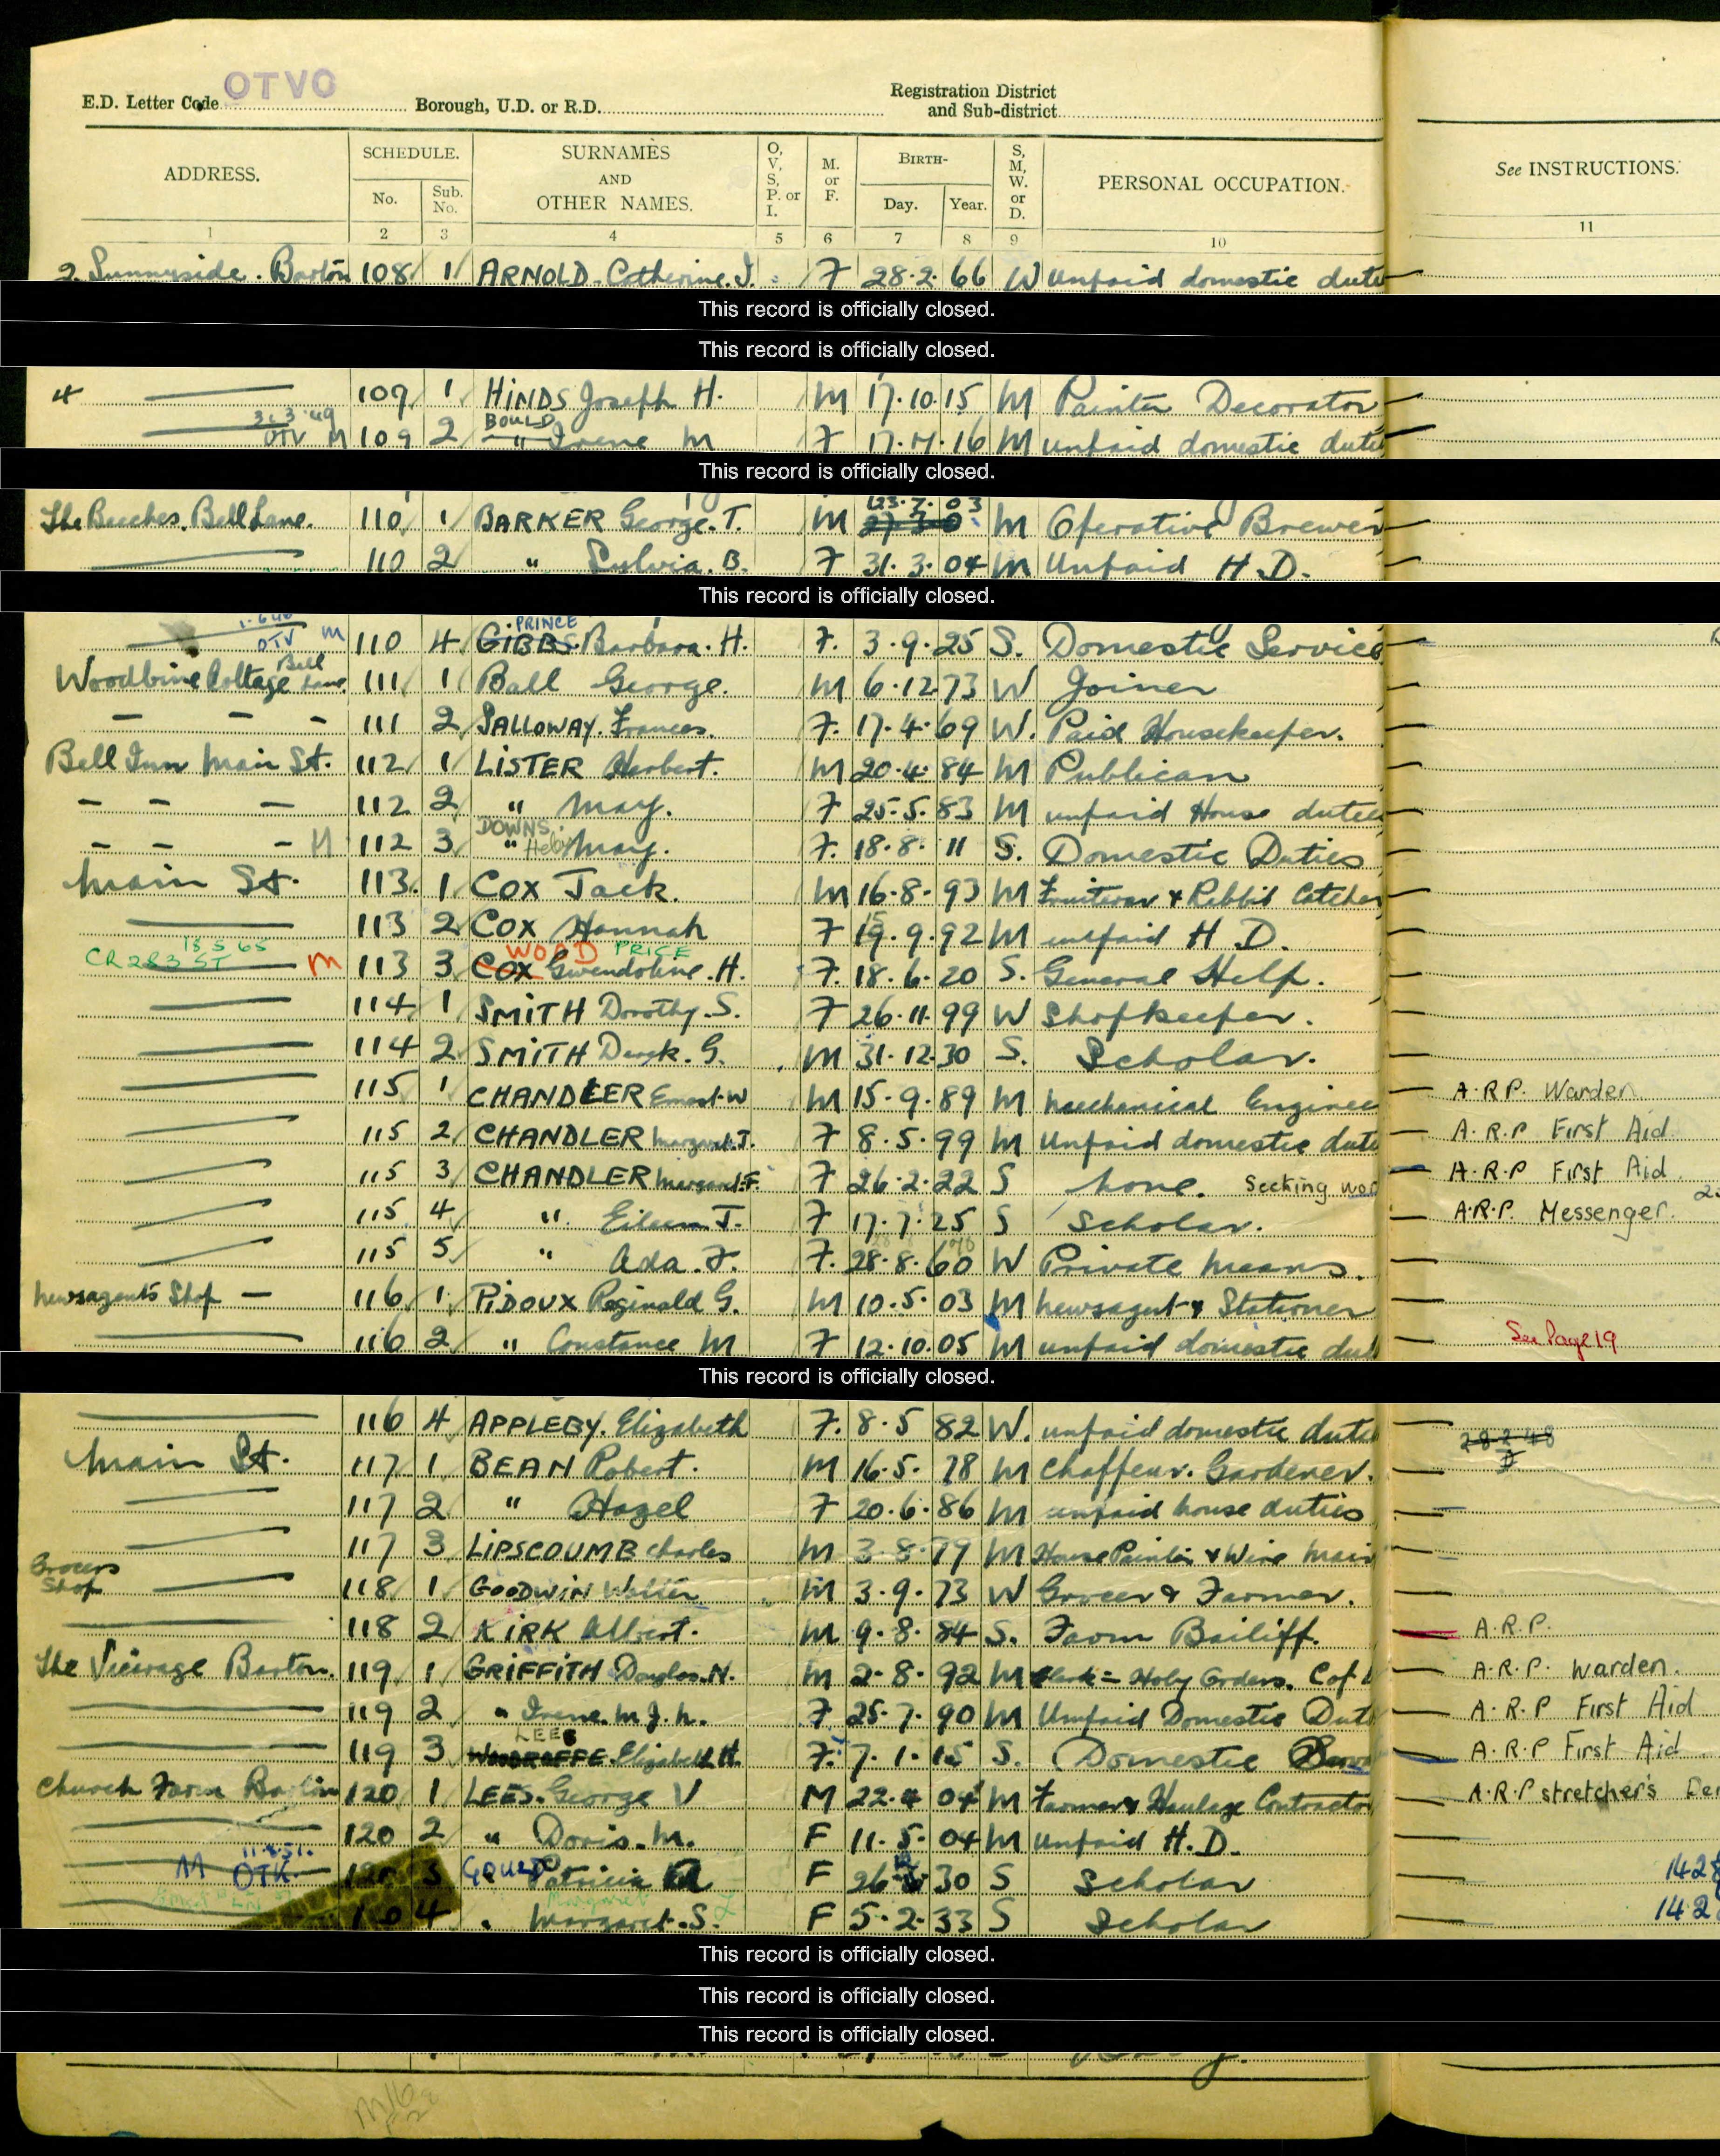 OTVO
E.D. Letter Code Borough, U.D. or R.D. Registration District and Sub-district
ADDRESS. SCHEDULE. No. Sub. No. SURNAMES AND OTHER NAMES. O, V, S, P. or I. M. or F. BIRTH- Day. Year. S, M, W. or D. PERSONAL OCCUPATION. See INSTRUCTIONS.
1 2 3 4 5 6 7 8 9 10 11
2. Sunnyside. Barton 108 1 ARNOLD Catherine. J. F 28.2. 66 W Unpaid domestic dutie
This record is officially closed.
This record is officially closed.
4 109 1 HINDS Joseph H. M 17.10.15 M Painter Decorator
31.3.49 OTV M 109 2 BOULD " Irene M F 17.4.16 M unpaid domestic dutie
This record is officially closed.
The Beeches. Bell Lane. 110 1 BARKER George. T. M 23.7.03 M Operative Brewer
110 2 " Sylvia. B. F 31.3.04 M Unpaid H.D.
This record is officially closed.
OTV M 110 4 PRINCE GIBBS. Barbara. H. F. 3.9.25 S. Domestic Service
Woodbine Cottage Bell Lane. 111 1 Ball George. M 6.12.73 W Joiner
111 2 SALLOWAY. Frances. F. 17.4.69 W. Paid Housekeeper.
Bell Inn Main St. 112 1 LISTER Herbert. M 20.4.84 M Publican
112 2 " May. F 25.5.83 M unpaid House duties
M 112 3 DOWNS. " May. F. 18.8.11 S. Domestic Duties
Main St. 113. 1 COX Jack. M 16.8.93 M Fruiterer & Rabbit Catcher
113 2 COX Hannah F 15.9.92 M unpaid H D.
CR283 ST 18 5 65 M 113 3 WOOD PRICE COX Gwendoline. H. F. 18.6.20 S. General Help.
114 1 SMITH Dorothy. S. F 26.11.99 W Shopkeeper.
114 2 SMITH Derek. G. M 31.12.30 S. Scholar.
115 1 CHANDLER Ernest. W M 15.9.89 M Mechanical Enginee A.R.P. Warden.
115 2 CHANDLER Margaret. J. F 8.5.99 M Unpaid domestic duti A.R.P First Aid.
115 3 CHANDLER Margaret. F. F 26.2.22 S None. Seeking wor A.R.P First Aid.
115 4 " Eileen J. F 17.7.25 S Scholar. A.R.P. Messenger.
115 5 " Ada. F. F. 28.8.60 W Private Means.
Newsagents Shop 116 1 PIDOUX Reginald G. M 10.5.03 M Newsagent & Stationer
116 2 " Constance M F 12.10.05 M unpaid domestic duti See Page 19
This record is officially closed.
116 4 APPLEBY. Elizabeth F. 8.5 82 W. unpaid domestic dutie 28 2 48
Main St. 117 1 BEAN Robert. M 16.5.78 M Chaffeur. Gardener.
117 2 " Hazel F 20.6.86 M unpaid house duties
117 3 LIPSCOUMB Charles M 3.8.79 M House Painter & Wire
Grocers Shop 118 1 GOODWIN Walter M 3.9.73 W Grocer & Farmer.
118 2 KIRK Albert. M 9.8.84 S. Farm Bailiff. A.R.P.
The Vicarage Barton. 119 1 GRIFFITH Douglas. N. M 2.8.92 M Clerk = Holy Orders. C of A.R.P. Warden.
119 2 " Irene. M. J. F 25.7.90 M Unpaid Domestic Duti A.R.P First Aid
119 3 LEES WOODROFFE. Elizabeth H. F. 7.1.15 S. Domestic A.R.P First Aid
Church Farm Barton 120 1 LEES. George V M 22.4 04 M Farmer & Haulage Contractor A.R.P stretcher's
120 2 " Doris. M. F 11.5.04 M unpaid H.D.
M OTK 11.8.51. 120 3 GOULD Patricia F 26 30 S Scholar 142
4 " Margaret. S. F 5.2.33 S Scholar 142
This record is officially closed.
This record is officially closed.
This record is officially closed.